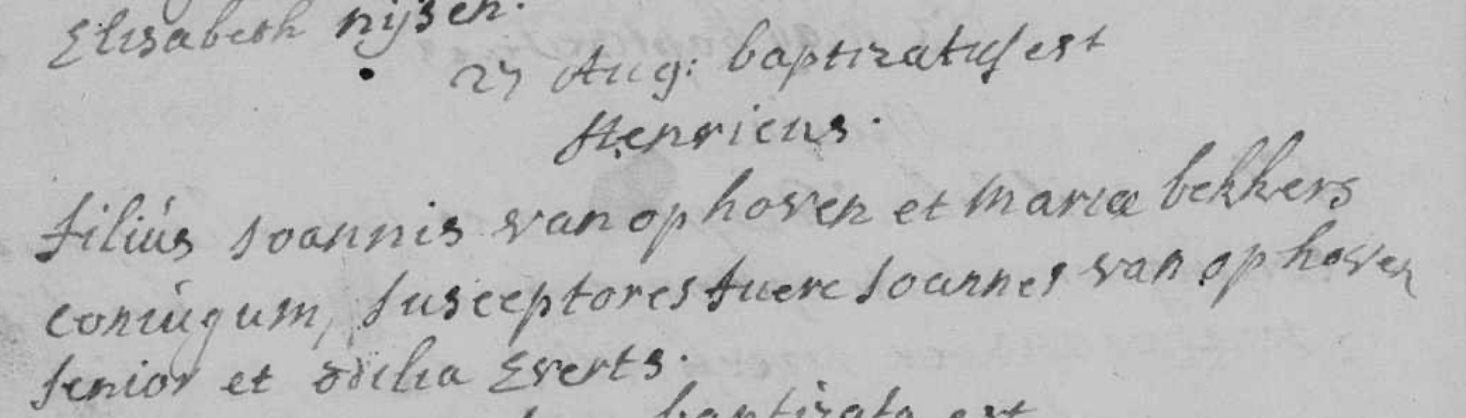 Elisabeth nijsen.
27 Aug: baptizatus est
Henricus.
filius Joannis van ophoven et Mariæ bekkers
coniugum, susceptores fuere Joannes van ophoven
senior et odilia Everts.
baptizata est